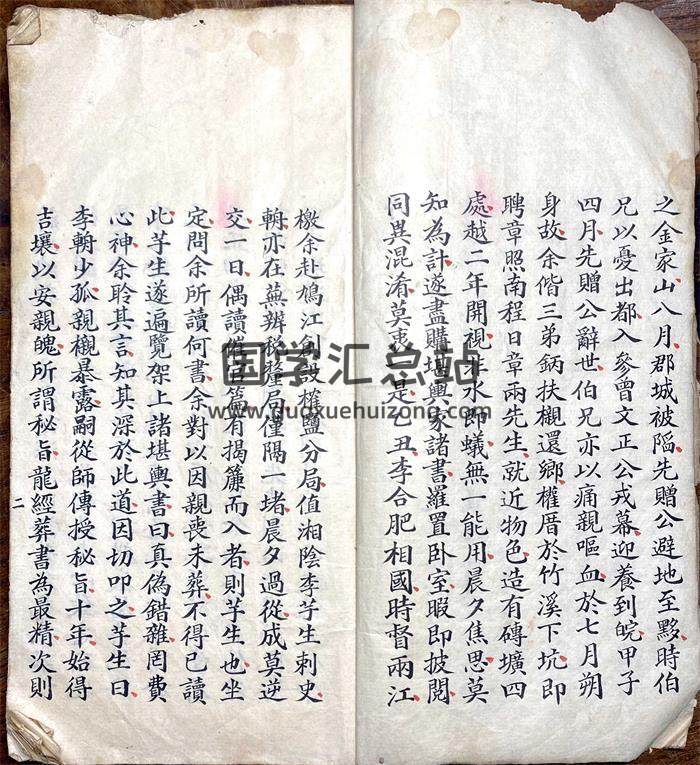 之金家山八月郡城被陷先贈公避地至黟時伯
兄以憂出都入參曾文正公戎幕迎養到皖甲子
四月先贈公辭世伯兄亦以痛親嘔血於七月朔
身故余偕三弟鈵扶櫬還鄉權厝於竹溪下坑即
聘章照南程日章兩先生就近物色造有磚壙四
處越二年開視非水即蟻無一能用晨夕焦思莫
知為計遂盡購堪輿家諸書羅置卧室暇即披閱
同異混淆莫衷一是乙丑李合肥相國時督兩江
檄余赴鳩江創設榷鹽分局值湘陰李芋生刺史
輈亦在蕪辨稅釐局僅隔一堵晨夕過從成莫逆
交一日偶讀催官篇有揭簾而入者則芋生也坐
定問余所讀何書余對以因親喪未葬不得已讀
此芋生遂遍覽架上諸堪輿書曰真偽錯雜罔費
心神余聆其言知其深於此道因切叩之芋生曰
李輈少孤親櫬暴露嗣從師傳授秘旨十年始得
吉壤以安親魄所謂秘旨龍經葬書為最精次則
二
国学汇总站
www.guoxuehuizong.com